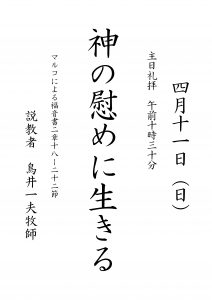 四月十一日(日)
主日礼拝 午前十時三十分
神の慰めに生きる
マルコによる福音書二章十八―二十二節
説教者 鳥井一夫牧師